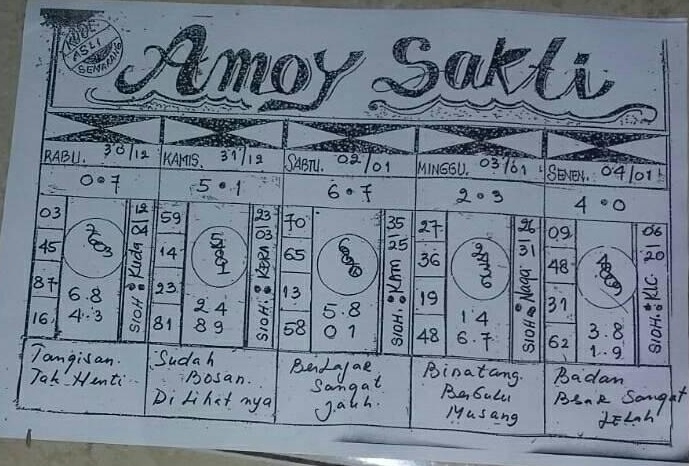 KODE
ASLI
SEMARANG
Amoy Sakti
RABU. 30/12
KAMIS. 31/12
SABTU. 02/01
MINGGU. 03/01
SENEN. 04/01
0•7
5•1
6•7
2•3
4•0
03
45
87
16
6.8
4.3
SIOH: Kuda 8 12
59
14
23
81
2 4
8 9
SIOH: KERA 03 23
70
65
13
58
5.8
0 1
25 35
27
36
19
48
1 4
6.7
SIOH: Naga 31 26
09
48
31
62
3.8
1.9
06
Tangisan.
Tak Henti
Sudah
Bosan.
Di Lihat nya
Berjalan
Sangat
Jauh.
Binatang.
Berbulu
Musang
Badan
Besar Sangat
Lelah